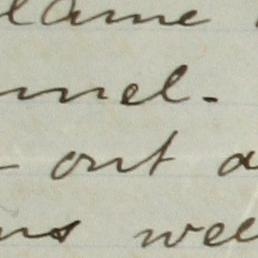 lame
nnel.
out a
ns well